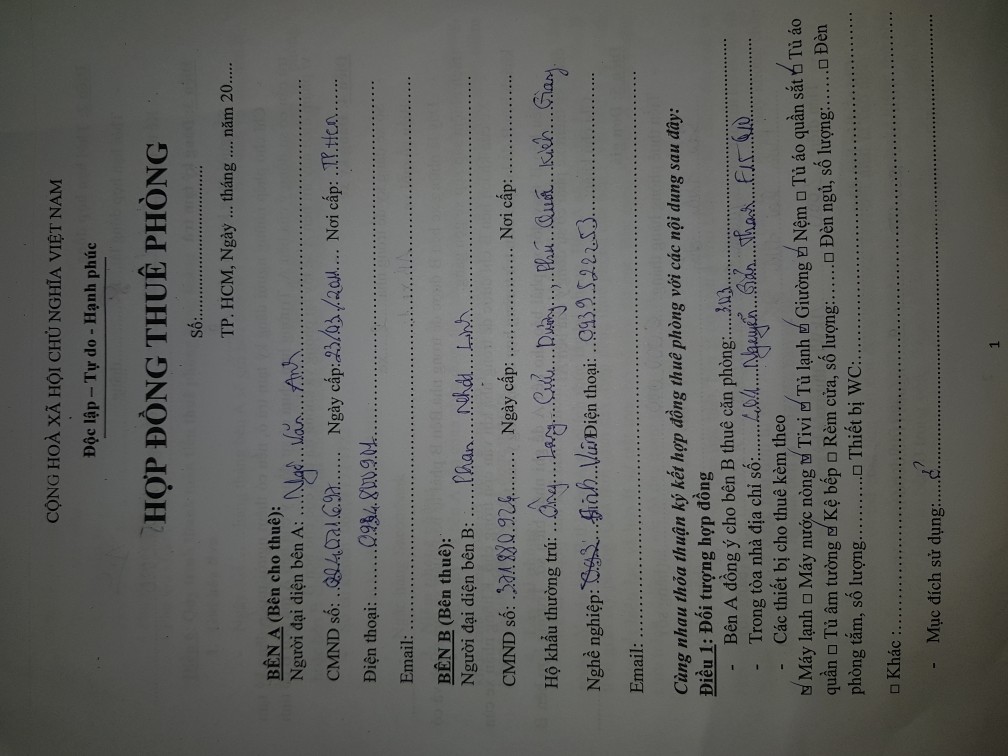 CỘNG HOÀ XÃ HỘI CHỦ NGHĨA VIỆT NAM
Độc lập – Tự do - Hạnh phúc
HỢP ĐỒNG THUÊ PHÒNG
Số:........................
TP. HCM, Ngày .. tháng .... năm 20.....
BÊN A (Bên cho thuê):
Người đại diện bên A: Ngô Văn Anh
CMND số: Ngày cấp: 23/03/2011 Nơi cấp: TP. Hcm
Điện thoại:
Email:
BÊN B (Bên thuê):
Người đại diện bên B: Phan Nhật Linh
CMND số: 371880924 Ngày cấp: Nơi cấp:
Hộ khẩu thường trú: Dương, Phú Quốc Kiên Giang
Nghề nghiệp: Điện thoại: 0939522253
Email:
Cùng nhau thỏa thuận ký kết hợp đồng thuê phòng với các nội dung sau đây:
Điều 1: Đối tượng hợp đồng
- Bên A đồng ý cho bên B thuê căn phòng: 303
- Trong tòa nhà địa chỉ số: Nguyễn Thanh F15 Q10
- Các thiết bị cho thuê kèm theo
☑ Máy lạnh □ Máy nước nóng ☑ Tivi ☑ Tủ lạnh ☑ Giường ☑ Nệm □ Tủ áo quần sắt ☑ Tủ áo
quần □ Tủ âm tường ☑ Kệ bếp □ Rèm cửa, số lượng:...... □ Đèn ngủ, số lượng:...... □ Đèn
phòng tắm, số lượng............ □ Thiết bị WC:
□ Khác :
- Mục đích sử dụng: ở
1